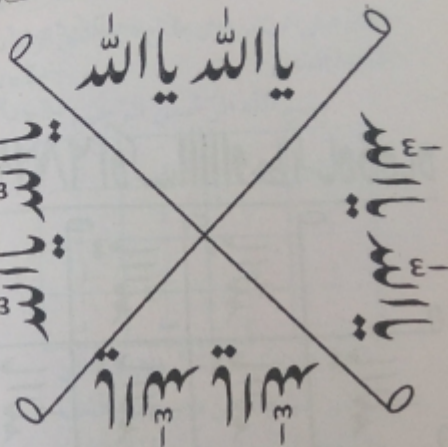 یا اللہ یا اللہ
یا اللہ یا اللہ
یا اللہ یا اللہ
یا اللہ یا اللہ